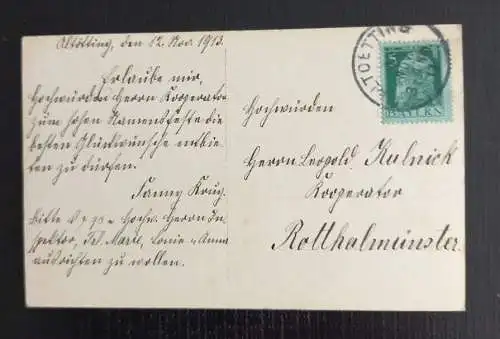 Altötting, den 12. Nov. 1913.
Erlaube mir,
Hochwürden Herrn Kooperator
zum hohen Namensfeste die
besten Glückwünsche entbie-
ten zu dürfen.
Fanny Krug.
Bitte Hochw. Herrn In-
spektor, Frl. Marie, u. Anna
ausrichten zu wollen.
ALTOETTING
5
BAYERN
Hochwürden
Herrn Leopold Kulnick
Kooperator
Rotthalmünster